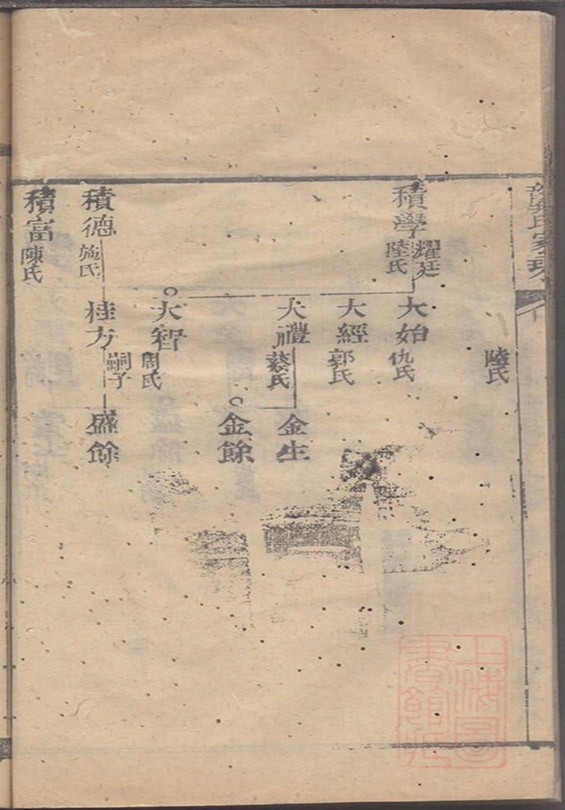 陸氏
積學
耀廷
陸氏
大始
仇氏
大經
郭氏
大禮
蔡氏
金生
金餘
大智
周氏
積德
施氏
桂方
嗣子
盛餘
積富
陳氏
上海圖
書館藏